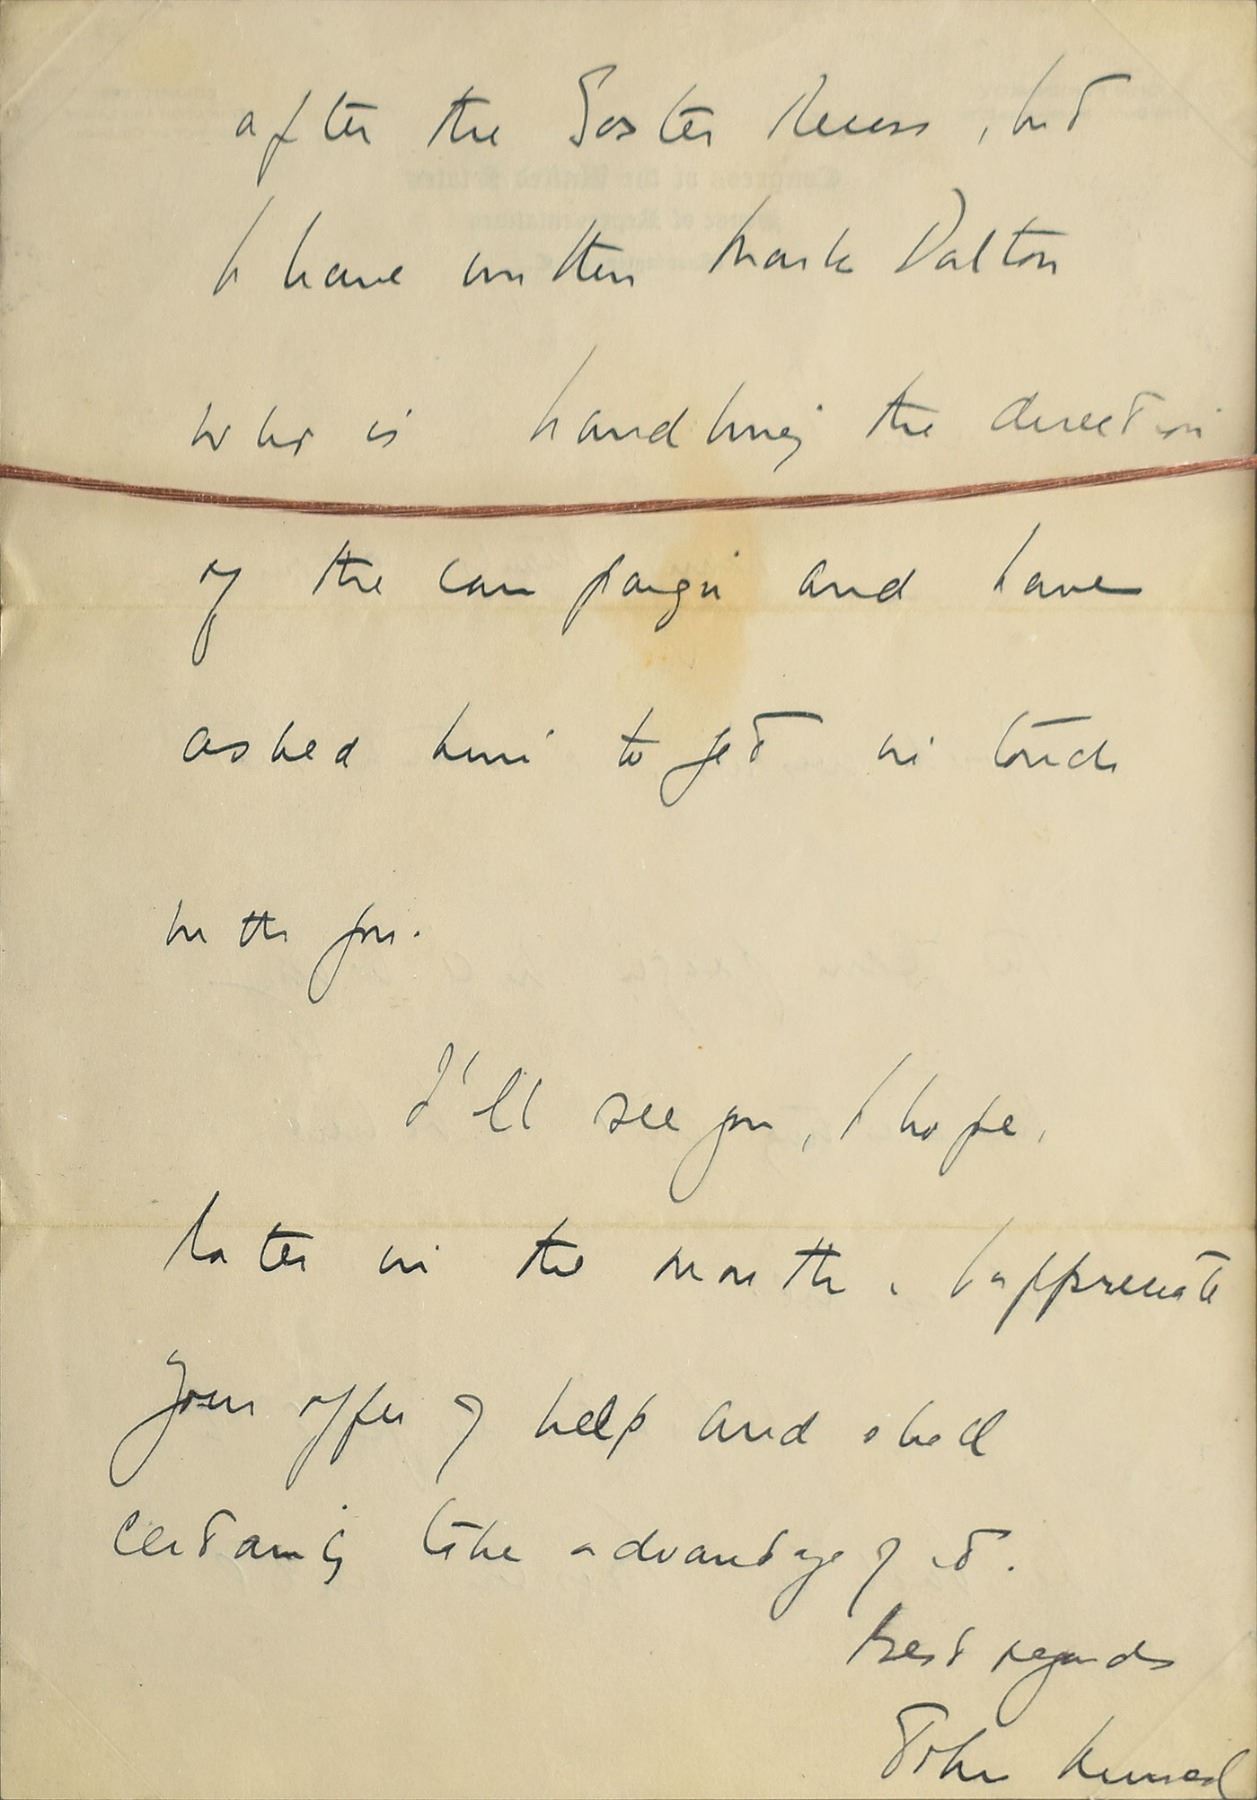 after the Easter Recess, but
I have written Mark Dalton
who is handling the direction
of the campaign and have
asked him to get in touch
with you.
I'll see you, I hope,
later in the month. I appreciate
your offer of help and shall
certainly take advantage of it.
Best regards
John Kenned